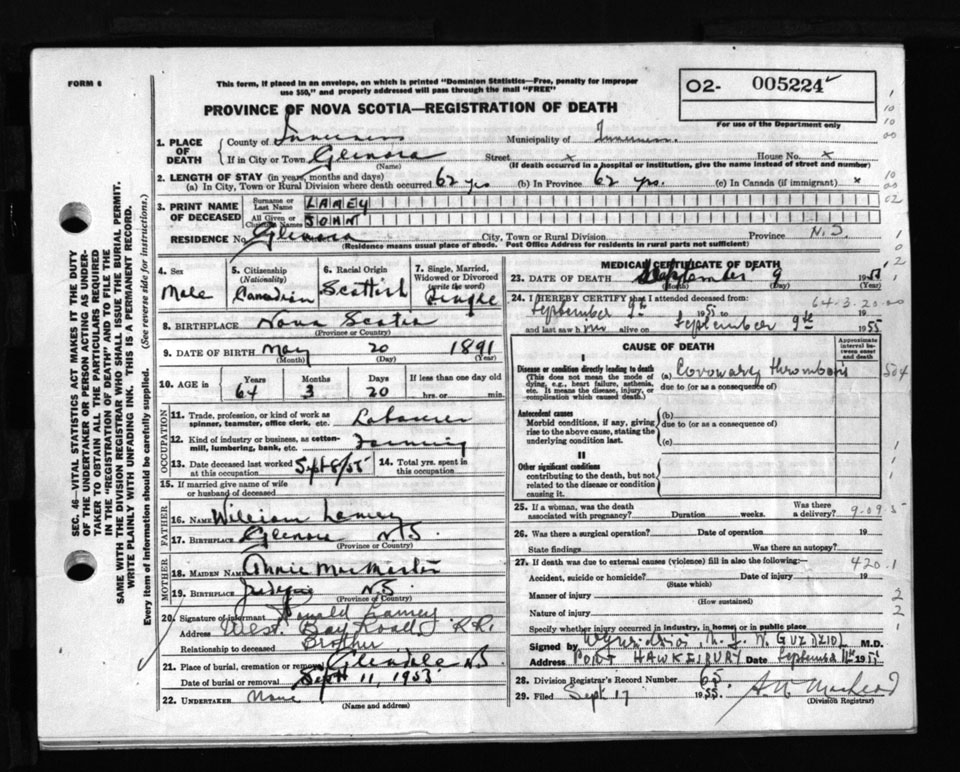 FORM 6
This form, if placed in an envelope, on which is printed "Dominion Statistics—Free, penalty for improper
use $50," and properly addressed will pass through the mail "FREE"
PROVINCE OF NOVA SCOTIA—REGISTRATION OF DEATH
O2- 005224
For use of the Department only
1. PLACE OF DEATH
County of Inverness Municipality of Inverness
If in City or Town Glenora Street x House No. x
(Name) (If death occurred in a hospital or institution, give the name instead of street and number)
2. LENGTH OF STAY (in years, months and days)
(a) In City, Town or Rural Division where death occurred 62 yrs (b) In Province 62 yrs. (c) In Canada (if immigrant) x
3. PRINT NAME OF DECEASED
Surname or Last Name LAMEY
All Given or Christian Names JOHN
RESIDENCE No. Glenora City, Town or Rural Division Province N.S.
(Residence means usual place of abode. Post Office Address for residents in rural parts not sufficient)
4. Sex Male
5. Citizenship (Nationality) Canadian
6. Racial Origin Scottish
7. Single, Married, Widowed or Divorced (write the word) Single
8. BIRTHPLACE Nova Scotia
(Province or Country)
9. DATE OF BIRTH May 20 1891
(Month) (Day) (Year)
10. AGE in Years 64 Months 3 Days 20 If less than one day old
hrs. or min.
OCCUPATION
11. Trade, profession, or kind of work as
spinner, teamster, office clerk, etc. Labourer
12. Kind of industry or business, as cotton-
mill, lumbering, bank, etc. Farming
13. Date deceased last worked
at this occupation Sept 8/55
14. Total yrs. spent in
this occupation
15. If married give name of wife
or husband of deceased
FATHER
16. NAME William Lamey
17. BIRTHPLACE Glenora N.S
(Province or Country)
MOTHER
18. MAIDEN NAME Annie MacMaster
19. BIRTHPLACE Judique N.S
(Province or Country)
20. Signature of informant Lamey
Address West Bay Road R.R.
Relationship to deceased Brother
21. Place of burial, cremation or removal Glendale N.S
Date of burial or removal Sept 11, 1955
22. UNDERTAKER None
(Name and address)
MEDICAL CERTIFICATE OF DEATH
23. DATE OF DEATH September 9 1955
(Month) (Day)
24. I HEREBY CERTIFY that I attended deceased from: 64-3-20-00
September 9th 1955 to
and last saw him alive on September 9th 1955
CAUSE OF DEATH
Approximate interval between onset and death
I
Disease or condition directly leading to death
(This does not mean the mode of
dying, e.g., heart failure, asthenia,
etc. It means the disease, injury, or
complication which caused death.)
(a) Coronary thrombosis
due to (or as a consequence of)
Antecedent causes
Morbid conditions, if any, giving
rise to the above cause, stating the
underlying condition last.
(b)
due to (or as a consequence of)
(c)
II
Other significant conditions
contributing to the death, but not
related to the disease or condition
causing it.
25. If a woman, was the death
associated with pregnancy? Duration weeks. Was there a delivery?
26. Was there a surgical operation? Date of operation 19
State findings Was there an autopsy?
27. If death was due to external causes (violence) fill in also the following:— 420.1
Accident, suicide or homicide? Date of injury 19
(State which)
Manner of injury
(How sustained)
Nature of injury
Specify whether injury occurred in industry, in home, or in public place
Signed by M.D.
Address PORT HAWKESBURY Date September 11th 1955
28. Division Registrar's Record Number 65
29. Filed Sept 17 1955. MacLeod
(Division Registrar)
SEC. 46—VITAL STATISTICS ACT MAKES IT THE DUTY
OF THE UNDERTAKER OR PERSON ACTING AS UNDER-
TAKER TO OBTAIN ALL THE PARTICULARS REQUIRED
IN THE "REGISTRATION OF DEATH" AND TO FILE THE
SAME WITH THE DIVISION REGISTRAR WHO SHALL ISSUE THE BURIAL PERMIT.
WRITE PLAINLY WITH UNFADING INK. THIS IS A PERMANENT RECORD.
Every item of information should be carefully supplied. (See reverse side for instructions.)